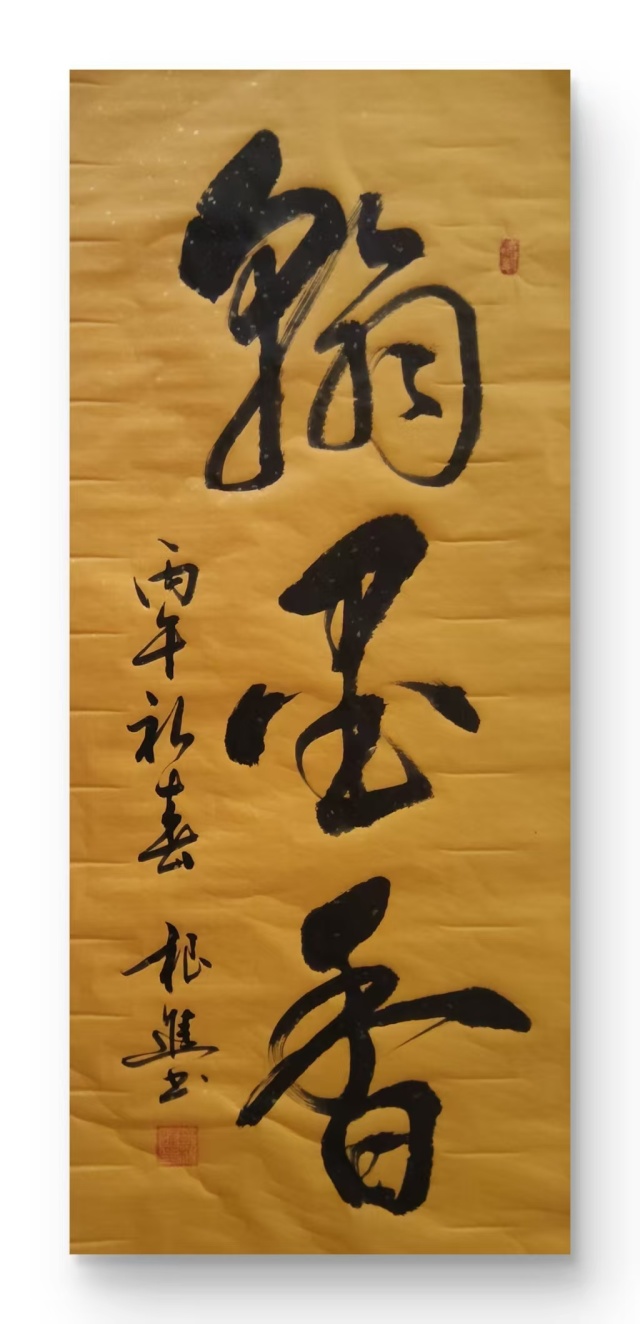 翰墨香
丙午初春 根进书